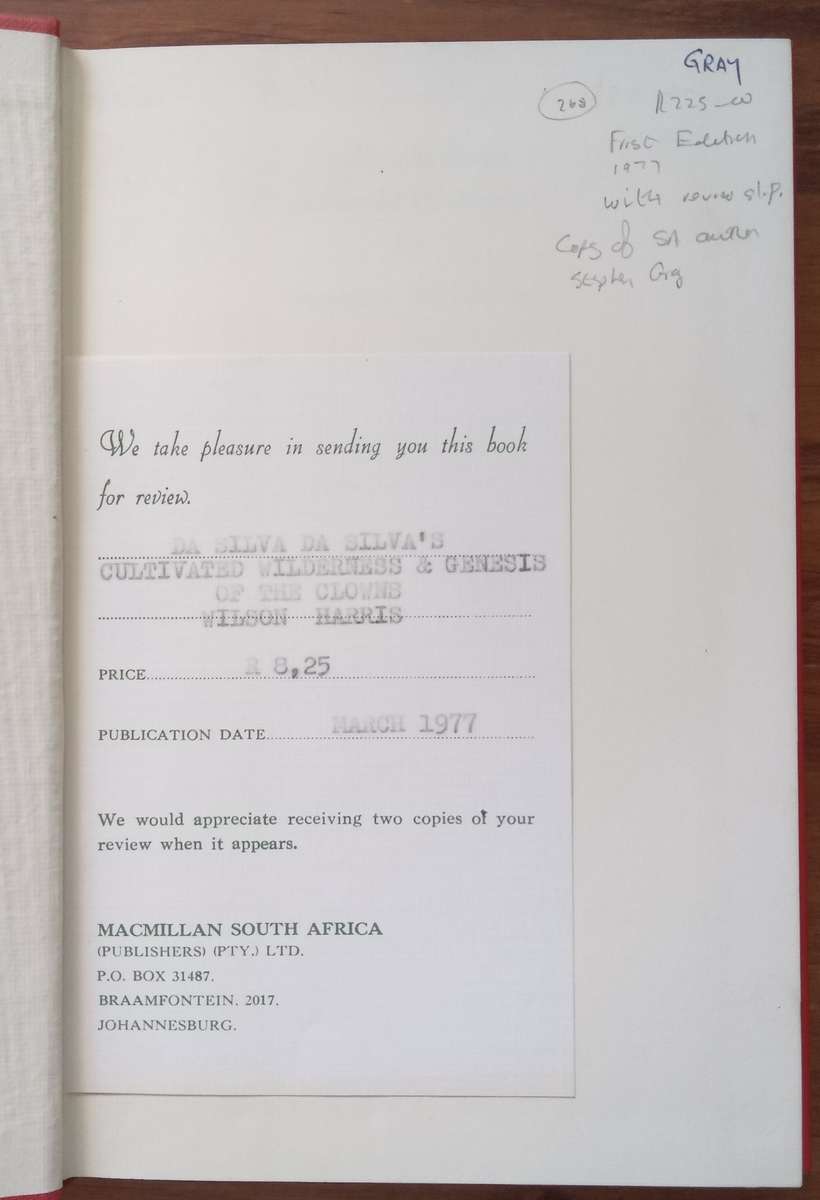 GRAY
268
R225-00
First Edition
1977
with review slip.
Copy of SA author
Stephen Gray
We take pleasure in sending you this book
for review.
DA SILVA DA SILVA'S
CULTIVATED WILDERNESS & GENESIS
OF THE CLOWNS
WILSON HARRIS
PRICE R 8,25
PUBLICATION DATE MARCH 1977
We would appreciate receiving two copies of your
review when it appears.
MACMILLAN SOUTH AFRICA
(PUBLISHERS) (PTY.) LTD.
P.O. BOX 31487,
BRAAMFONTEIN. 2017.
JOHANNESBURG.